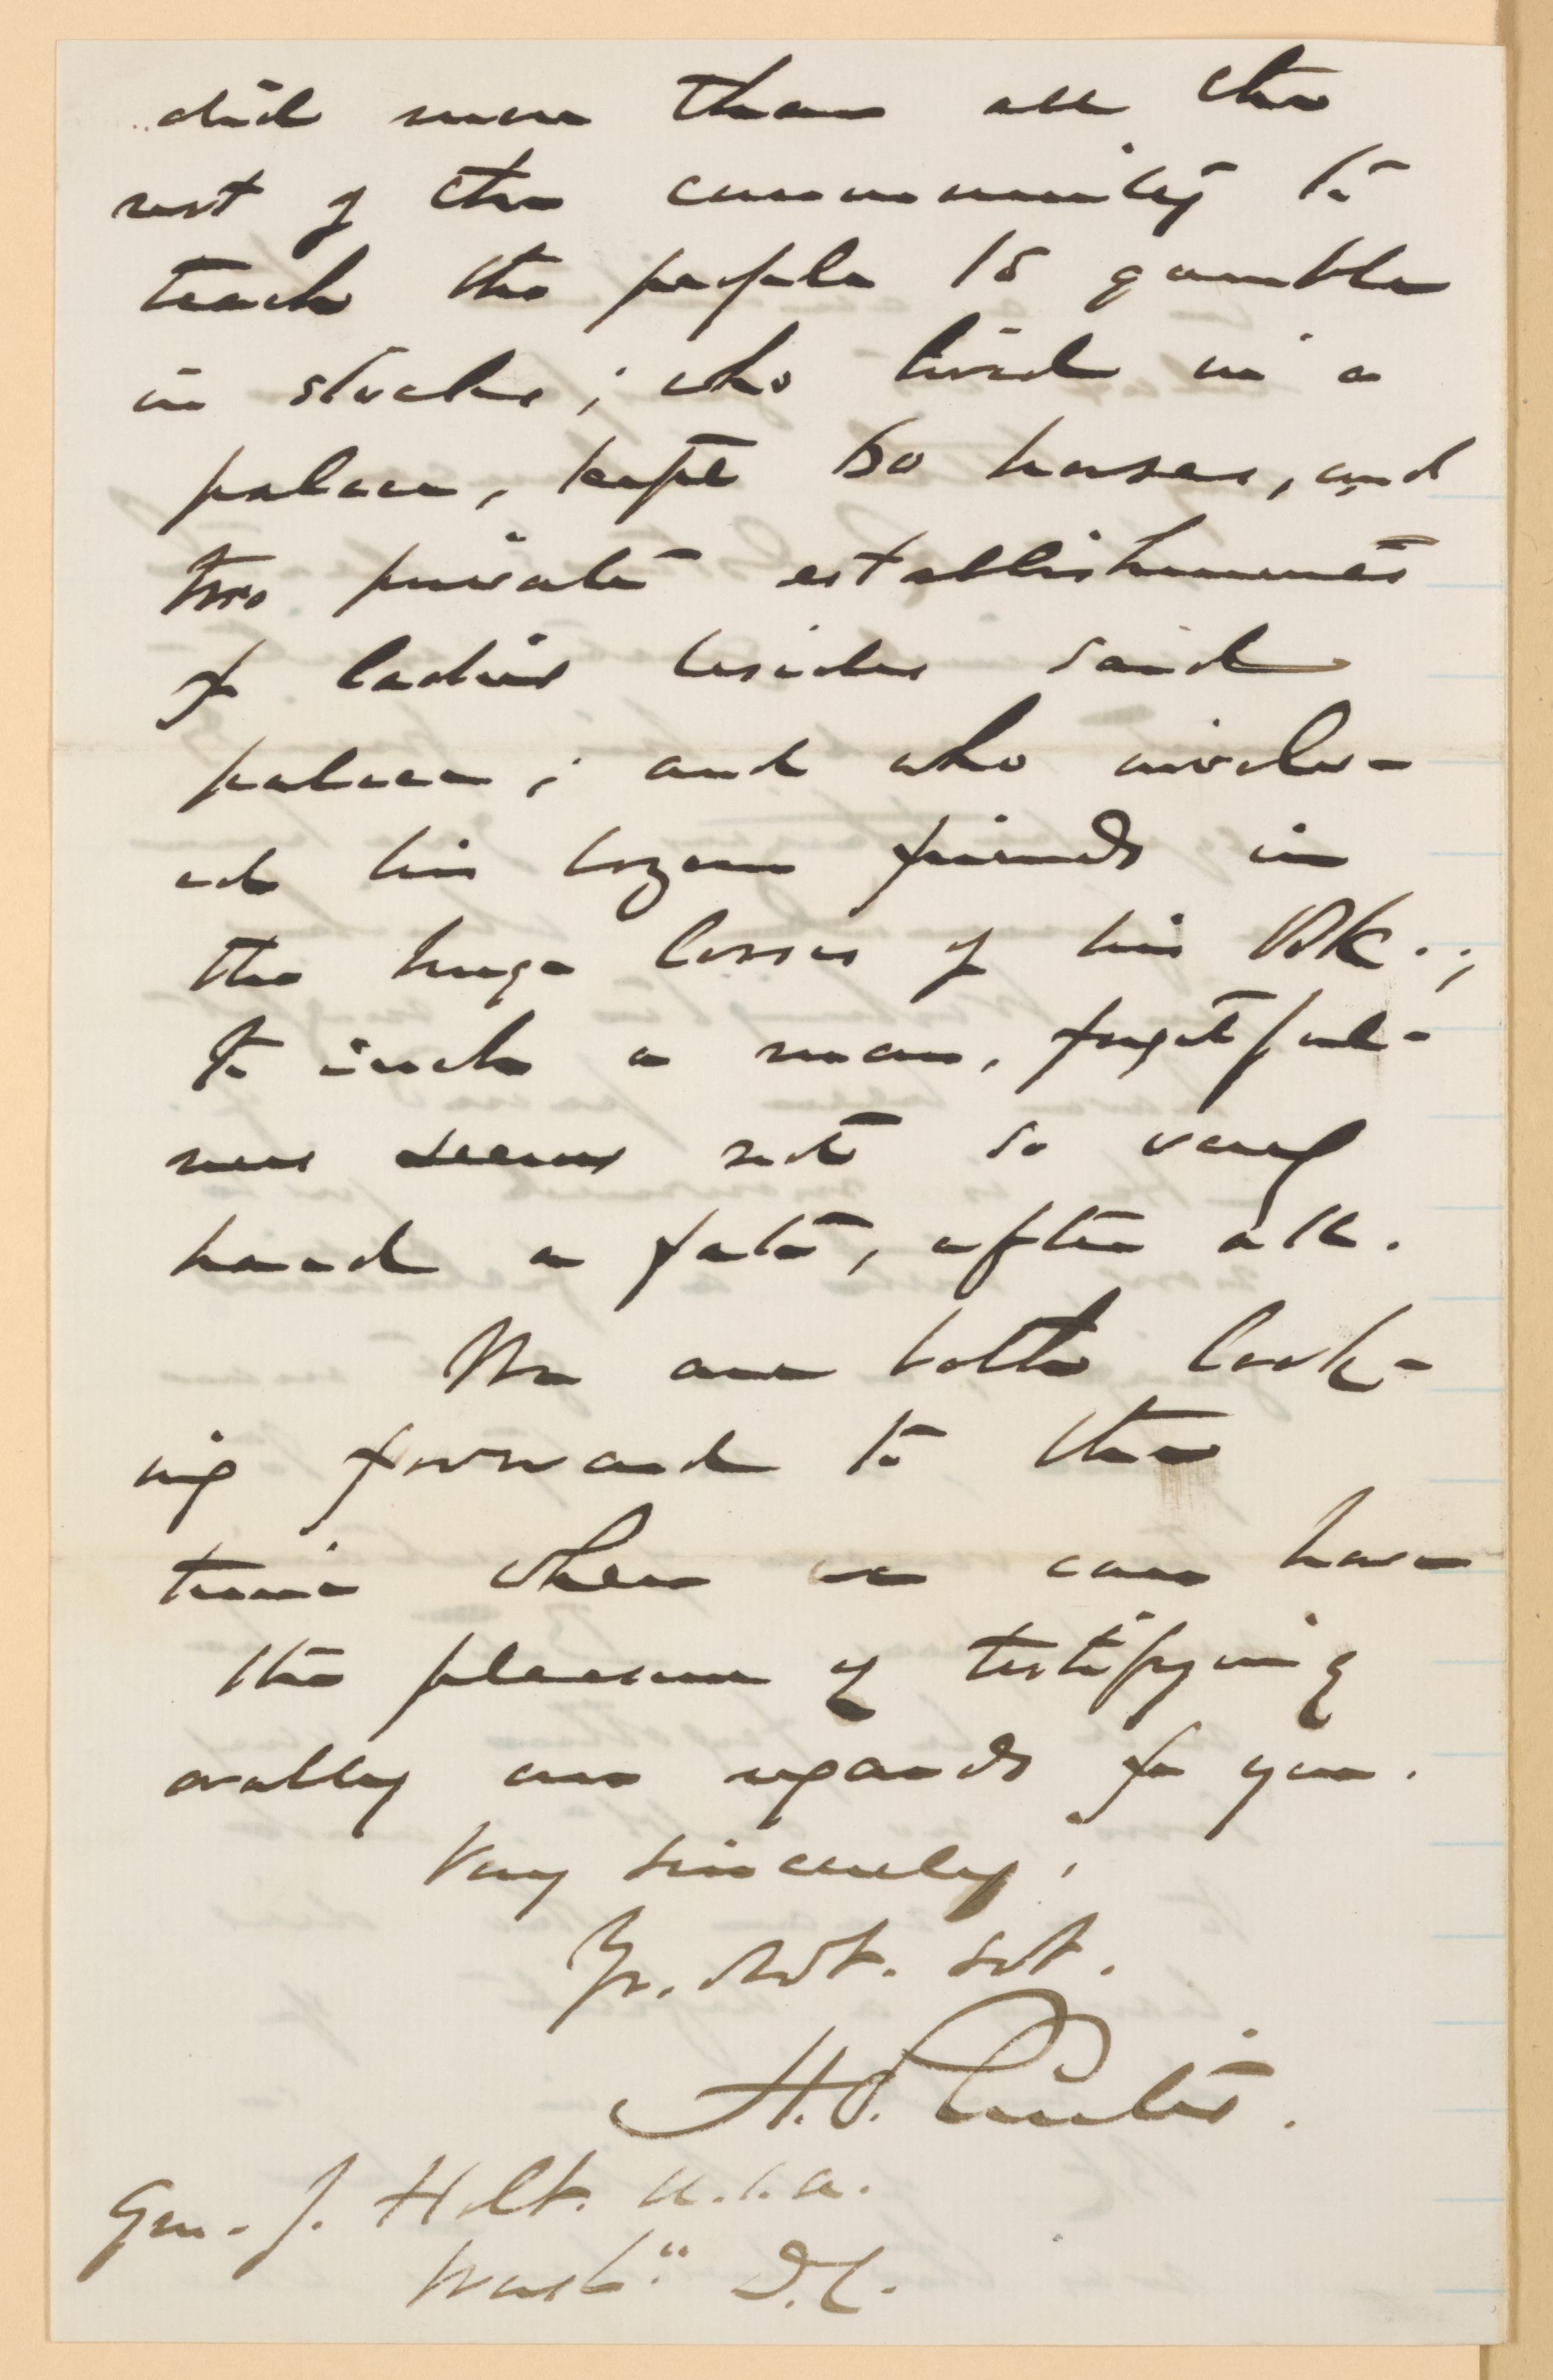 did more than all the
rest of the community to
teach the people to gamble
in stocks; who lived in a
palace, kept 60 horses, and
two private establishments
of ladies besides said
palace; and who involv-
ed his bozom friends in
the huge losses of his Bk.;
to such a man, forgetful-
ness seems not so very
hard a fate, after all.
We are both look-
ing forward to the
time when we can have
the pleasure of testifying
orally our regards for you.
Very sincerely,
Yr. obt. svt.
H. P. Curtis.
Gen. J. Holt. U.S.A.
Wash.n D.C.